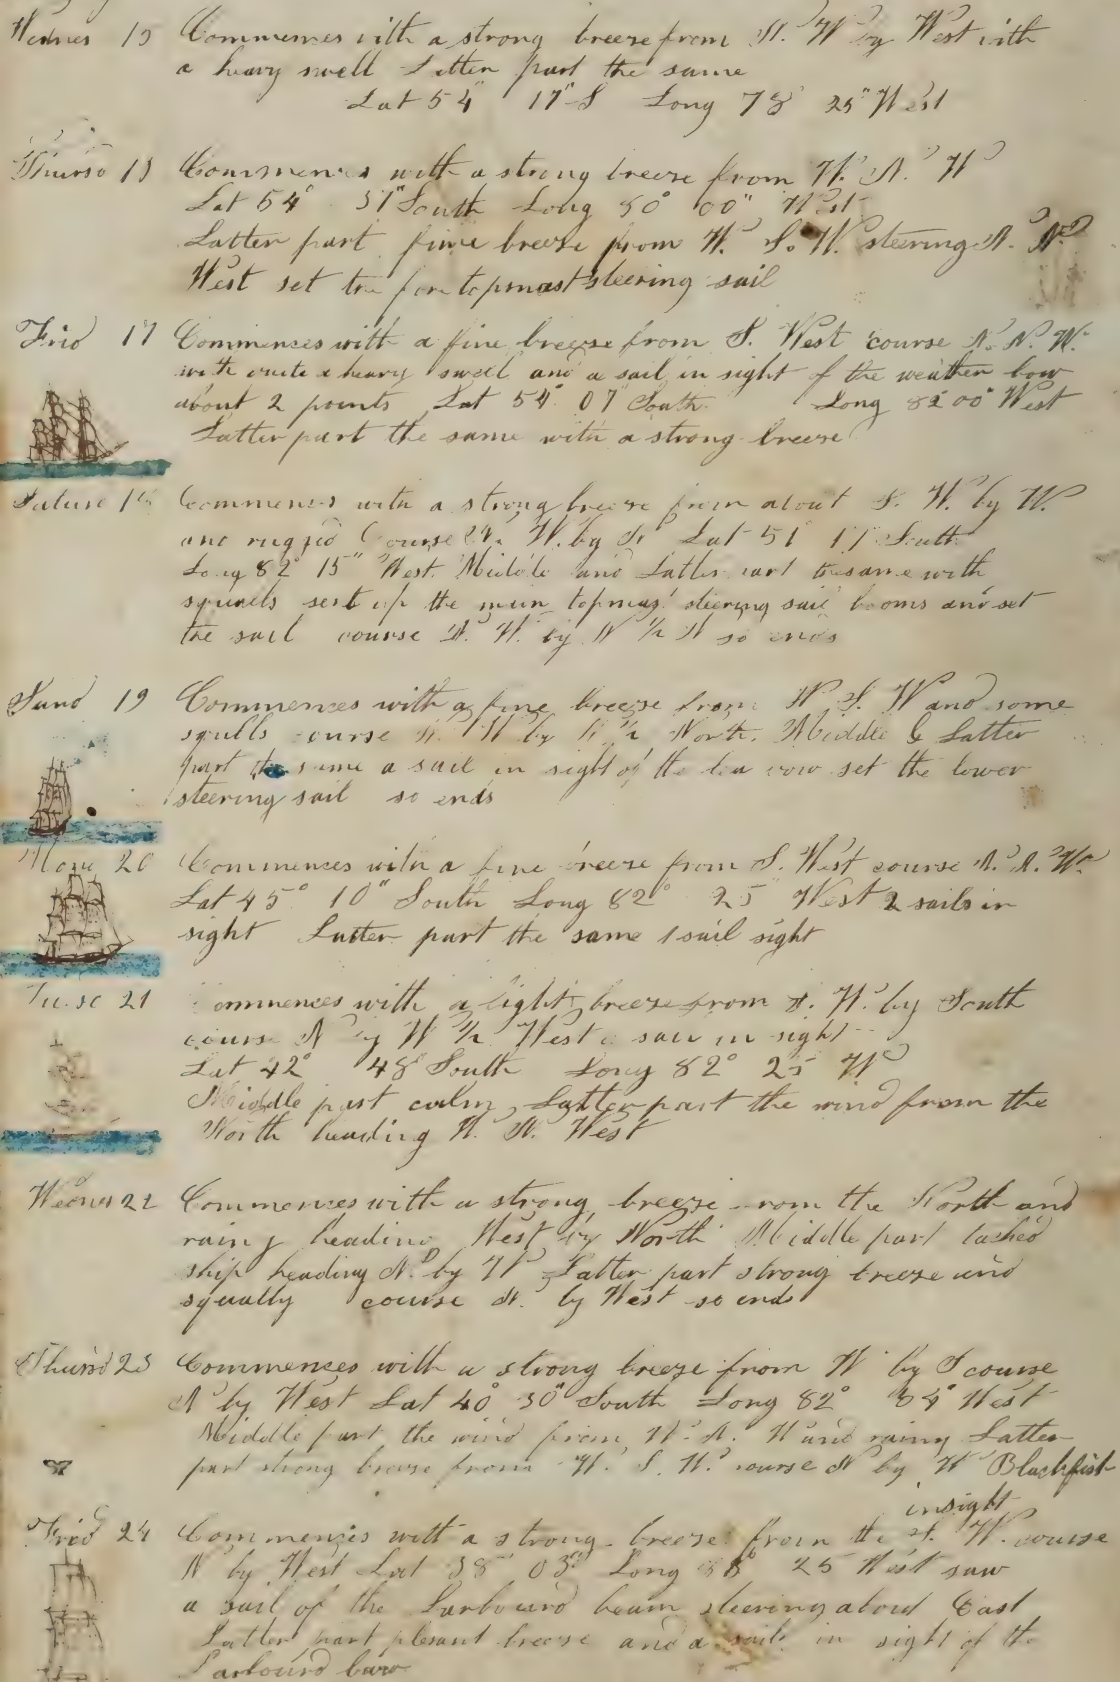 Wednes 15 Commences with a strong breeze from S. W by West with
a heavy swell Latter part the same
Lat 54° 17" S Long 78° 25" West
Thursd Commences with a strong breeze from W. N. W
Lat 54° 51" South Long 80° 00" West
Latter part fine breeze from W. S. W. steering N. N
West set the fore topmast steering sail
Frid 17 Commences with a fine breeze from S. West course N. N. W.
with quite a heavy swell and a sail in sight of the weather bow
about 2 points Lat 54° 07" South Long 82° 00" West
Latter part the same with a strong breeze
Saturd Commences with a strong breeze from about S. W. by W.
and rugged Course W. by N Lat 51° South
Long 82° 15" West. Middle and Latter part the same with
squals sent up the main topmast steering sail booms and set
the sail course N. W. by N ½ N so ends
Sund 19 Commences with a fine breeze from W S. W and some
squlls course N. W by N ½ North. Middle & Latter
part the same a sail in sight of the lea bow set the lower
steering sail so ends
Mond 20 Commences with a fine breeze from S. West course N. N. W.
Lat 45° 10" South Long 82° 25 West 2 sails in
sight Latter part the same 1 sail sight
Tuesd 21 Commences with a light breeze from S. W. by South
course N by W ½ West a sail in sight
Lat 42° 48" South Long 82° 25 W
Middle part calm, Latter part the wind from the
North heading W. N. West
Wednes 22 Commences with a strong breeze from the North and
rainy heading West by North Middle part tacked
ship heading N. by W Latter part strong breeze and
squally course N. by West so ends
Thursd 23 Commences with a strong breeze from W by S course
N by West Lat 40° 30" South Long 82° 34" West
Middle part the wind from W. N. W and rainy Latter
part strong breeze from W. S. W. course N by W Blackfish
insight
Frid 24 Commences with a strong breeze from the S. W. course
N by West Lat 38° 03" Long 25 West saw
a sail of the Larbourd beam steering about East
Latter part plesant breeze and a sail in sight of the
Larbourd bow